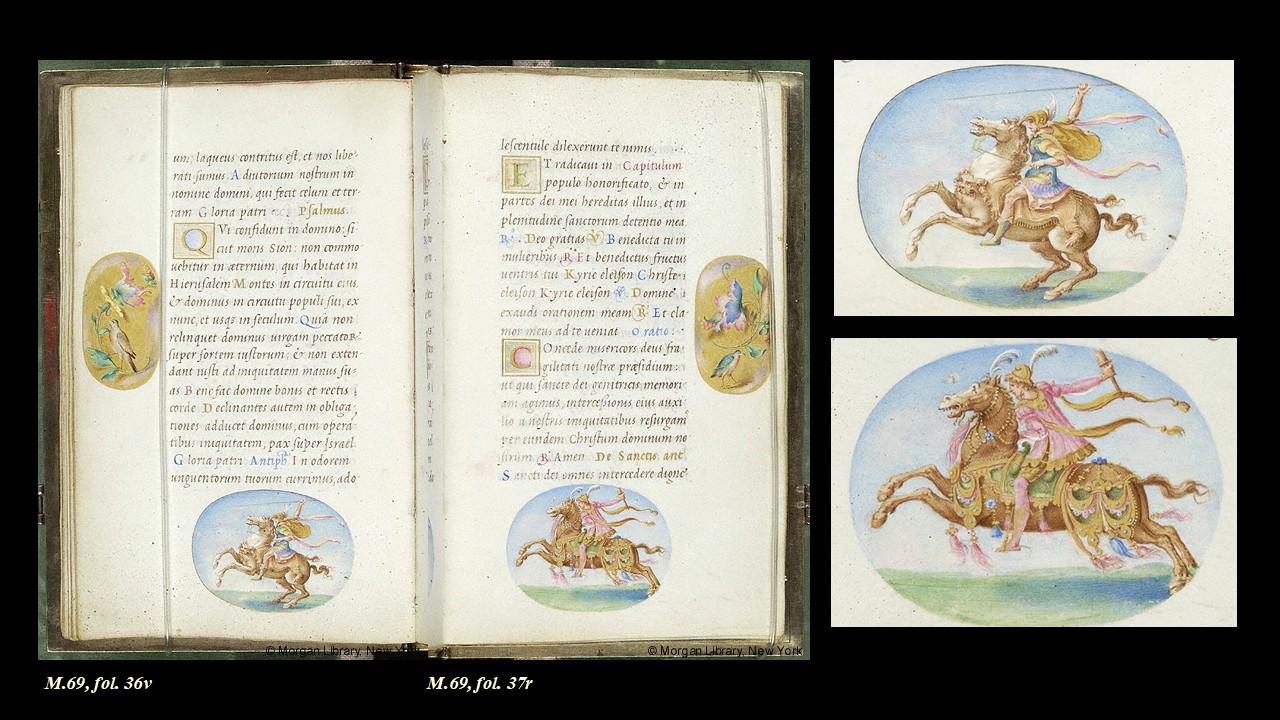 um, laqueus contritus est, et nos libe-
rati sumus Adiutorium nostrum in
nomine domini, qui fecit celum et ter-
ram Gloria patri Psalmus.
QVi confidunt in domino: si
cut mons Sion: non commo
uebitur in æternum, qui habitat in
Hierusalem Montes in circuitu eius,
& dominus in circuitu populi sui, ex
nunc, et usqz in seculum. Quia non
relinquet dominus uirgam peccator
super sortem iustorum; & non exten-
dant iusti ad iniquitatem manus su-
as Benefac domine bonis et rectis
corde Declinantes autem in obliga-
tiones adducet dominus, cum opera
tibus iniquitatem, pax super Israel.
Gloria patri Antiph In odorem
unguentorum tuorum currimus, ado
lescentule dilexerunt te nimis
ET radicaui in Capitulum
populo honorificato, & in
partes dei mei hereditas illius, et in
plenitudine sanctorum detentio mea
R. Deo gratias V Benedicta tu in
mulieribus R Et benedictus fructus
uentris tui Kyrie eleison Christe
eleison Kyrie eleison V. Domine
exaudi orationem meam R Et cla
mor meus ad te ueniat Oratio:
COncede misericors deus fra
gilitati nostræ præsidium:
ut qui sancte dei genitricis memori
am aginus, intercessionis eius auxi
lio a nostris iniquitatibus resurgam
per eundem Christum dominum no
strum R Amen De Sanctis ant
Sancti dei omnes intercedere digne
© Morgan Library, New York
© Morgan Library, New York
M.69, fol. 36v
M.69, fol. 37r